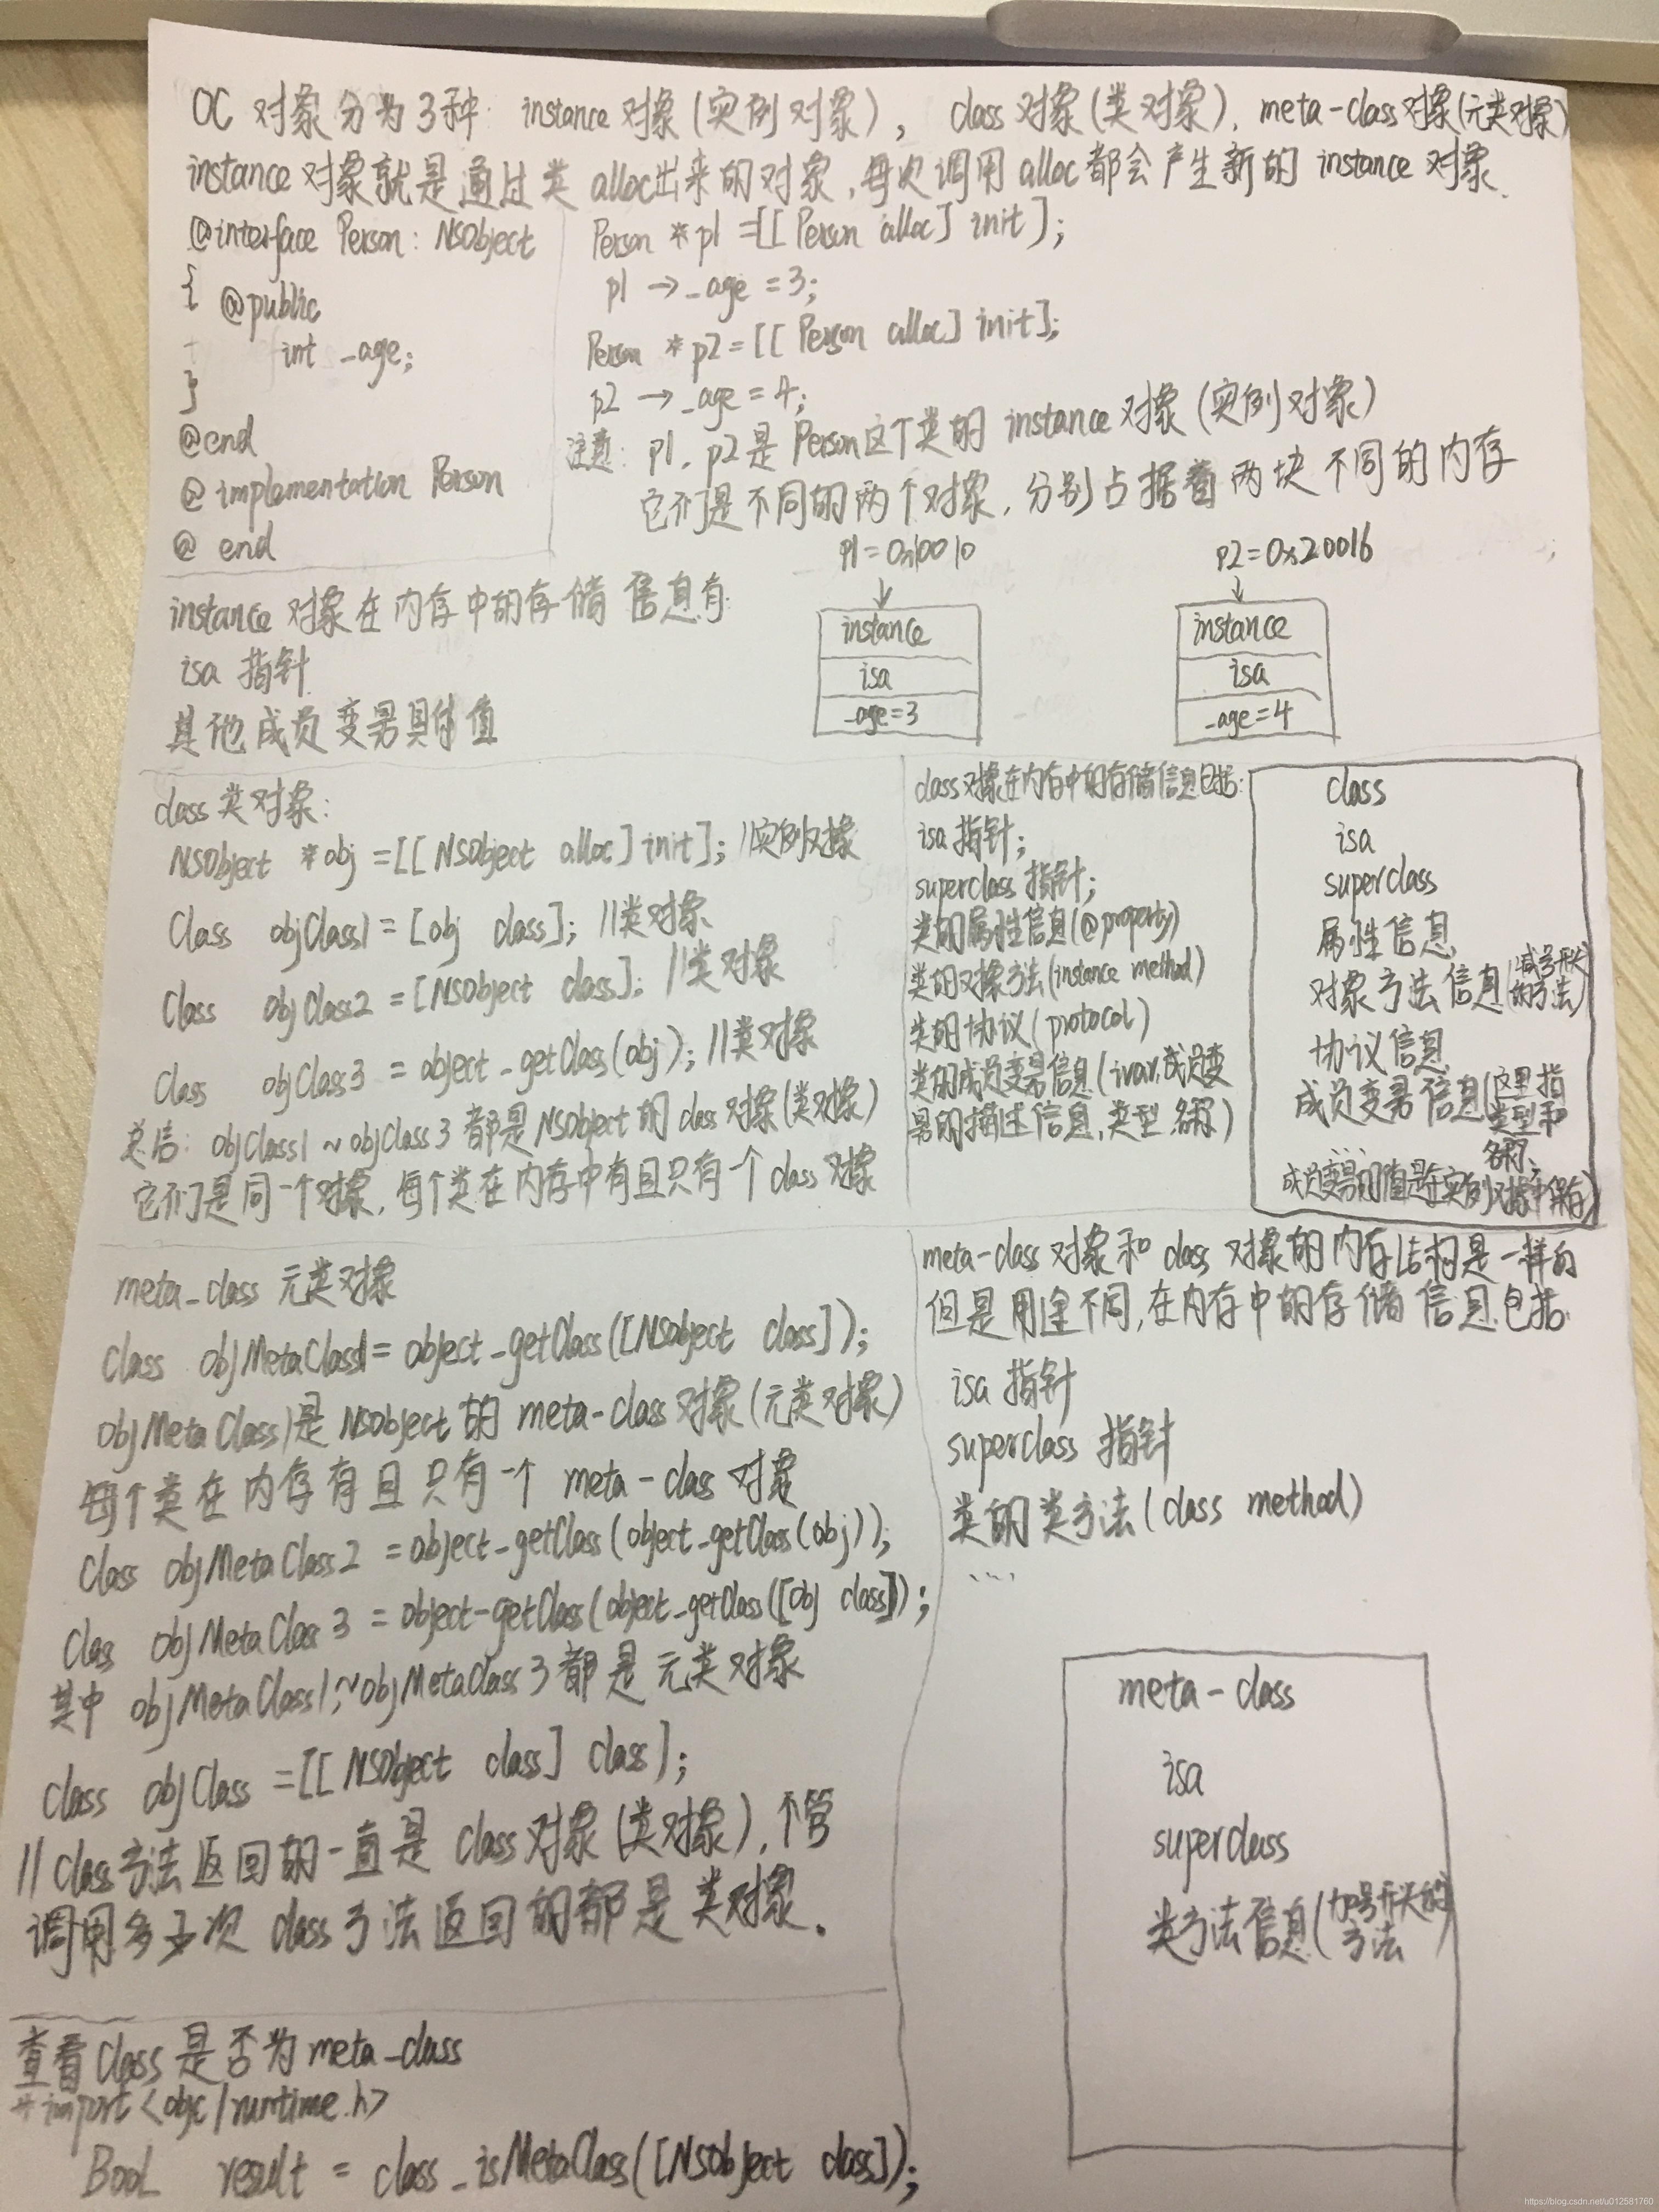 OC 对象分为3种: instance对象(实例对象), class对象(类对象), meta-class对象(元类对象)
instance对象就是通过类 alloc出来的对象,每次调用alloc都会产生新的 instance 对象.
@interface Person: NSObject
{
@public
int _age;
}
@end
@implementation Person
@end
Person *p1 =[[Person alloc] init];
p1 →_age =3;
Person *p2=[[Person alloc] init];
p2 →_age=4;
注意: p1, p2是Person这个类的 instance对象(实例对象)
它们是不同的两个对象,分别占据着两块不同的内存
p1=0x10010
p2=0x20016
instance
isa
_age=3
instance
isa
_age=4
instance 对象在内存中的存储信息有:
isa 指针
其他成员变量具体值
class类对象:
NSObject *obj =[[NSObject alloc] init]; //实例对象
Class objClass1=[obj class]; //类对象
Class objClass2=[NSObject class]; //类对象
Class objClass3 = object_getClass(obj); //类对象
总结: objClass1~objClass3都是NSObject的class对象(类对象)
它们是同一个对象,每个类在内存中有且只有一个class对象
class对象在内存中的存储信息包括:
isa 指针;
superclass 指针;
类的属性信息(@property)
类的对象方法(instance method)
类的协议(protocol)
类的成员变量信息(ivar,成员变
量的描述信息,类型,名称)
class
isa
superclass
属性信息
对象方法信息(减号开头的方法)
协议信息
成员变量信息(这里指类型和名称,
成员变量的值是在实例对象中保存)
meta_class 元类对象
Class objMetaClass1= object_getClass([NSObject class]);
objMetaClass1是NSObject的 meta-class对象(元类对象)
每个类在内存有且只有一个 meta-class 对象
Class objMetaClass2 =object_getClass(object_getClass(obj));
Class objMetaClass3 =object-getClass(object_getClass([obj class]));
其中 objMetaClass1,~objMetaClass3都是元类对象
Class objClass =[[NSObject class] class];
//class方法返回的一直是 class对象(类对象),不管
调用多少次 class方法返回的都是类对象.
meta-class 对象和 class 对象的内存结构是一样的
但是用途不同,在内存中的存储信息包括
isa 指针
superclass 指针
类的类方法(class method)
....
meta-class
isa
superclass
类方法信息(加号开头的方法)
查看Class是否为meta_class
#import<objc/runtime.h>
BooL result = class_isMetaClass([NSObject class]);
https://blog.csdn.net/u012581760